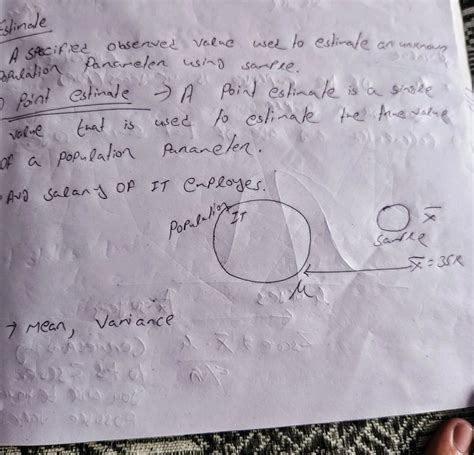 Estimate
A specified observed value used to estimate an unknown
Population Parameter using sample.
) Point estimate → A Point estimate is a single
value that is used to estimate the true value
of a population Parameter.
Avg salary of IT employes.
Population
IT
x̄
sample
x̄ = 35k
μ
→ Mean, Variance